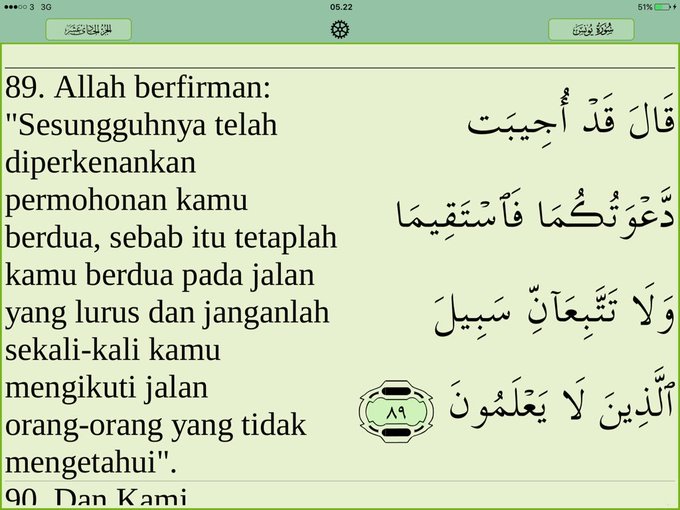 3 3G 05.22 51%
الجزء الحادي عشر سورة يونس
89. Allah berfirman:
"Sesungguhnya telah
diperkenankan
permohonan kamu
berdua, sebab itu tetaplah
kamu berdua pada jalan
yang lurus dan janganlah
sekali-kali kamu
mengikuti jalan
orang-orang yang tidak
mengetahui".
90. Dan Kami
قَالَ قَدْ أُجِيبَت
دَّعْوَتُكُمَا فَٱسْتَقِيمَا
وَلَا تَتَّبِعَآنِّ سَبِيلَ
ٱلَّذِينَ لَا يَعْلَمُونَ ٨٩